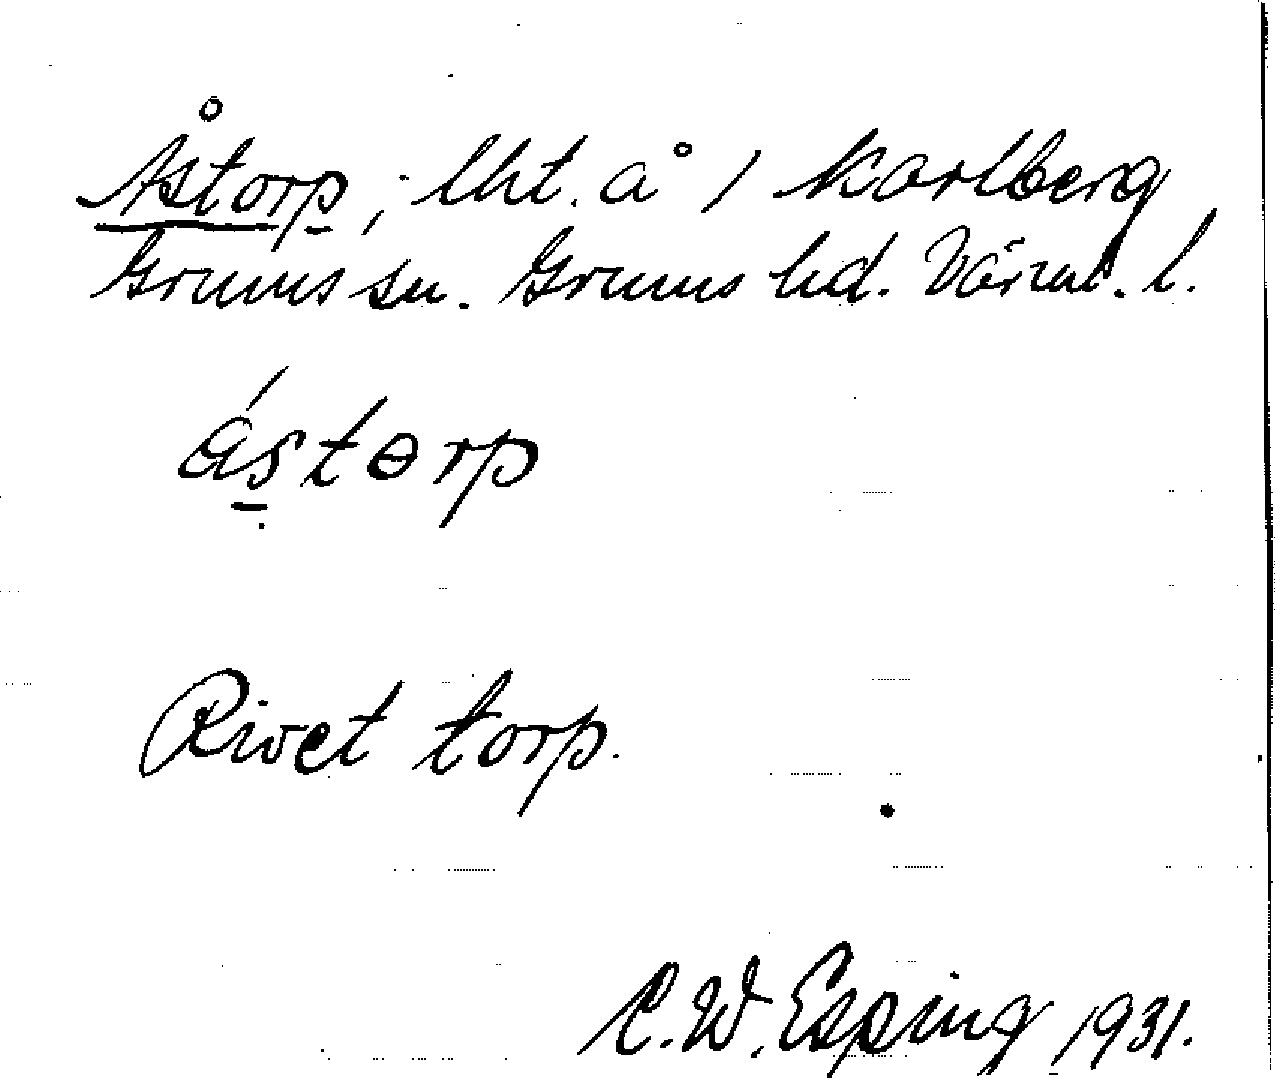 Åstorp; lht. å 1 Karlberg
Grums sn. Grums hd. Värml. l.
ástɵrp
Rivet torp.
C.W. Esping 1931.